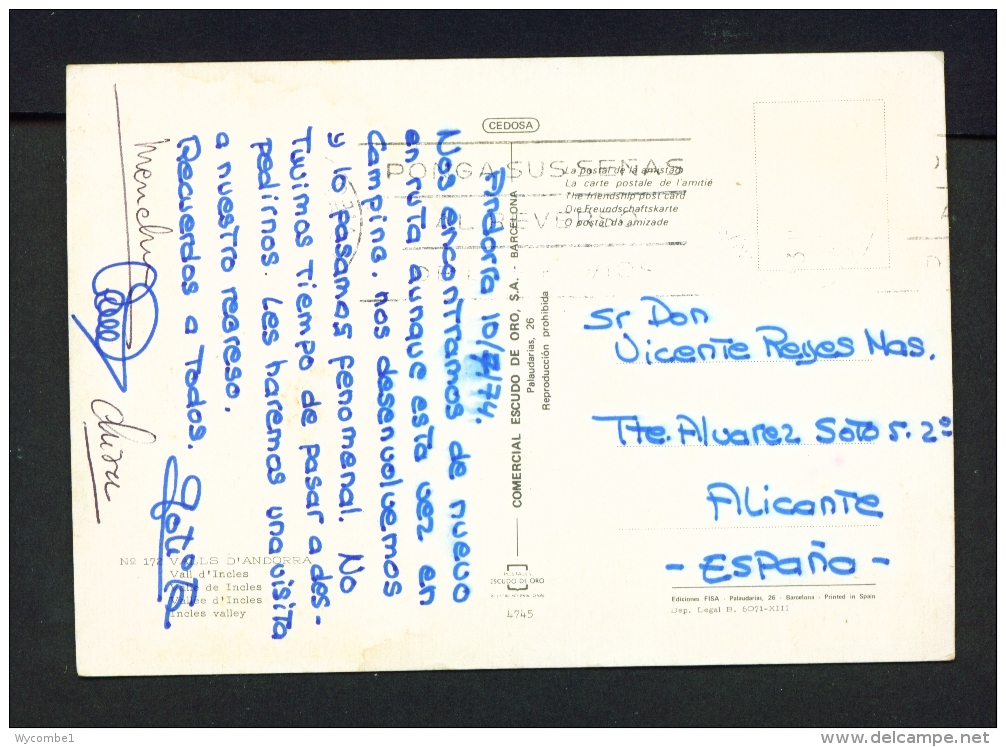 Andorra 10/7/74.
Nos encontramos de nuevo
en ruta aunque esta vez en
Camping. nos desenvolvemos
y lo pasamos fenomenal. No
Tuvimos Tiempo de pasar a des-
pedirnos. Les haremos una visita
a nuestro regreso.
Recuerdos a Todos.
Menchu
Sr Don
Vicente Reyes Mas.
Tte. Alvarez Soto 5. 2º
Alicante
- ESPAÑA -
CEDOSA
PONGA SUS SEÑAS
AL REVERSO
La postal de la amistad
La carte postale de l'amitié
The friendship post card
Die Freundschaftskarte
O postal da amizade
COMERCIAL ESCUDO DE ORO, S.A. - BARCELONA
Palaudarias, 26
Reproducción prohibida
Nº 172 VALLS D'ANDORRA
Vall d'Incles
Valle de Incles
Vallee d'Incles
Incles valley
ESCUDO DE ORO
4745
Ediciones FISA - Palaudarias, 26 - Barcelona - Printed in Spain
Dep. Legal B. 6071-XIII
Wycombe1
www.delcampe.net